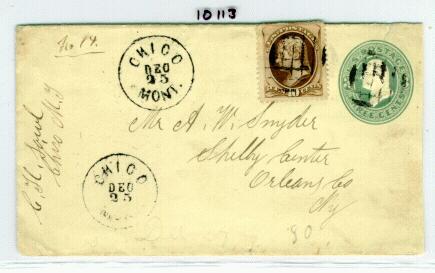 10113
No 14.
CHICO
DEC
25
MONT.
U.S. POSTAGE
THREE CENTS
Mr A. W. Snyder
Shelby Center
Orleans Co
Ny
CHICO
DEC
25
MONT.
Chico M.T.
80